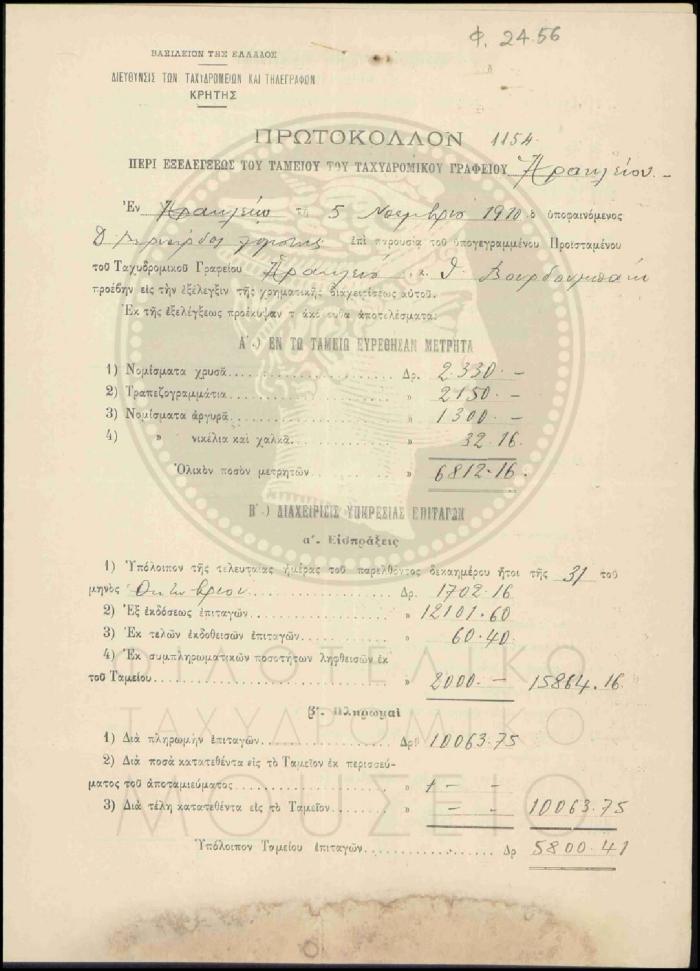 Φ. 24.56
ΒΑΣΙΛΕΙΟΝ ΤΗΣ ΕΛΛΑΔΟΣ
ΔΙΕΥΘΥΝΣΙΣ ΤΩΝ ΤΑΧΥΔΡΟΜΕΙΩΝ ΚΑΙ ΤΗΛΕΓΡΑΦΩΝ
ΚΡΗΤΗΣ
ΠΡΩΤΟΚΟΛΛΟΝ 1154
ΠΕΡΙ ΕΞΕΛΕΓΞΕΩΣ ΤΟΥ ΤΑΜΕΙΟΥ ΤΟΥ ΤΑΧΥΔΡΟΜΙΚΟΥ ΓΡΑΦΕΙΟΥ Ἡρακλείου –
Ἐν Ἡρακλείῳ τῇ 5 Νοεμβρίου 1910 ὁ ὑποφαινόμενος
ἐπὶ παρουσίᾳ τοῦ ὑπογεγραμμένου Προϊσταμένου
τοῦ Ταχυδρομικοῦ Γραφείου Ἡρακλείου κ. Θ. Βουρδουμπάκη
προέβην εἰς τὴν ἐξέλεγξιν τῆς χρηματικῆς διαχειρίσεως αὐτοῦ.
Ἐκ τῆς ἐξελέγξεως προέκυψαν τ ἀκο ουθα ἀποτελέσματα:
Α΄.) ΕΝ ΤΩ ΤΑΜΕΙΩ ΕΥΡΕΘΗΣΑΝ ΜΕΤΡΗΤΑ
1) Νομίσματα χρυσᾶ.......... Δρ. 2.330. –
2) Τραπεζογραμμάτια.......... » 2150. –
3) Νομίσματα ἀργυρᾶ.......... » 1300. –
4) » νικέλια καὶ χαλκᾶ.......... » 32.16
Ὁλικὸν ποσὸν μετρητῶν.......... » 6812.16.
Β΄.) ΔΙΑΧΕΙΡΙΣΙΣ ΥΠΗΡΕΣΙΑΣ ΕΠΙΤΑΓΩΝ
α΄. Εἰσπράξεις
1) Ὑπόλοιπον τῆς τελευταίας ἡμέρας τοῦ παρελθόντος δεκαημέρου ἤτοι τῆς 31 τοῦ
μηνὸς Ὀκτωβρίου Δρ. 1702.16
2) Ἐξ ἐκδόσεως ἐπιταγῶν.......... » 12101.60
3) Ἐκ τελῶν ἐκδοθεισῶν ἐπιταγῶν.......... » 60.40
4) Ἐκ συμπληρωματικῶν ποσοτήτων ληφθεισῶν ἐκ
τοῦ Ταμείου.......... » 2000. – 15864.16
β΄. Πληρωμαὶ
1) Διὰ πληρωμὴν ἐπιταγῶν.......... Δρ 10063.75
2) Διὰ ποσὰ κατατεθέντα εἰς τὸ Ταμεῖον ἐκ περισσεύ-
ματος τοῦ ἀποταμιεύματος.......... » – –
3) Διὰ τέλη κατατεθέντα εἰς τὸ Ταμεῖον.......... » – – 10063.75
Ὑπόλοιπον Ταμείου ἐπιταγῶν.......... Δρ 5800.41
ΦΙΛΟΤΕΛΙΚΟ
ΤΑΧΥΔΡΟΜΙΚΟ
ΜΟΥΣΕΙΟ